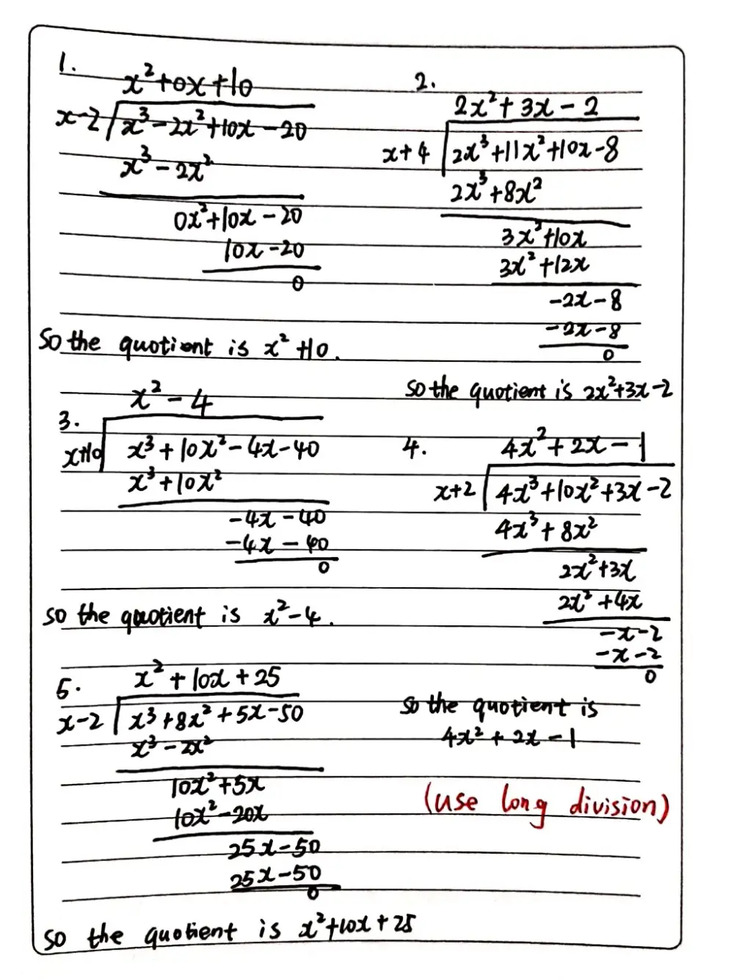 1.
x²+0x+10
x-2 x³-2x²+10x-20
x³-2x²
0x²+10x-20
10x-20
0
So the quotient is x²+10.
2.
2x²+3x-2
x+4 2x³+11x²+10x-8
2x³+8x²
3x²+10x
3x²+12x
-2x-8
-2x-8
0
so the quotient is 2x²+3x-2
3.
x²-4
x+10 x³+10x²-4x-40
x³+10x²
-4x-40
-4x-40
0
so the quotient is x²-4.
4.
4x²+2x-1
x+2 4x³+10x²+3x-2
4x³+8x²
2x²+3x
2x²+4x
-x-2
-x-2
0
so the quotient is
4x²+2x-1
5.
x²+10x+25
x-2 x³+8x²+5x-50
x³-2x²
10x²+5x
10x²-20x
25x-50
25x-50
0
so the quotient is x²+10x+25
(use long division)